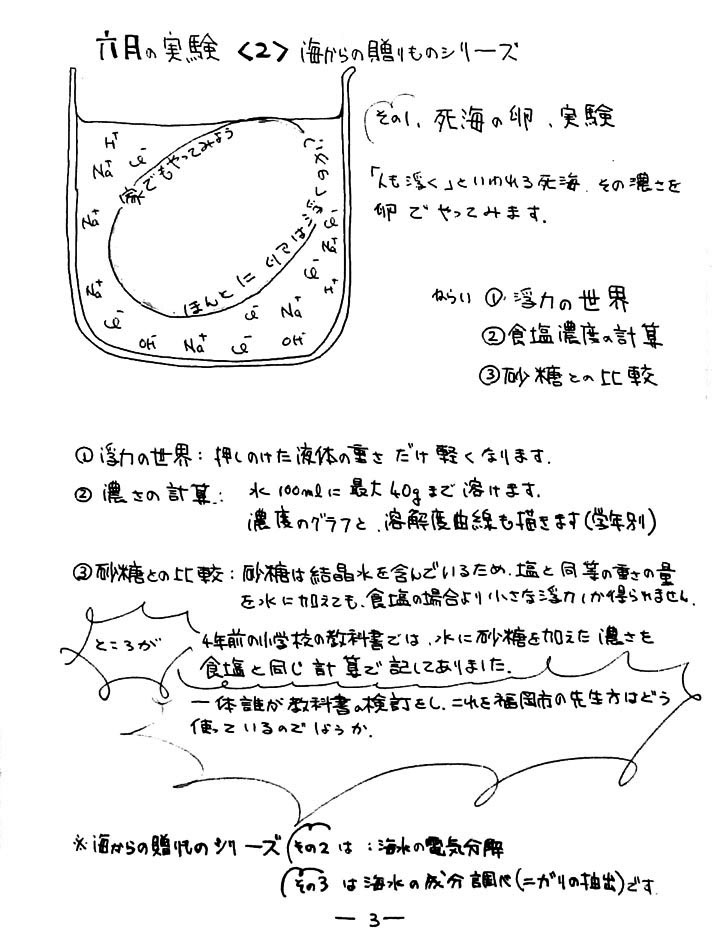 六月の実験〈2〉海からの贈りものシリーズ
その1. 死海の卵、実験
「人も浮く」といわれる死海. その濃さを
卵でやってみます.
家でもやってみよう
ほんとに
H⁺
Na⁺
Cl⁻
Na⁺
Na⁺
Cl⁻
OH⁻
Na⁺
Cl⁻
Cl⁻
Na⁺
OH⁻
Cl⁻
Na⁺
Cl⁻
H⁺
ねらい ①浮力の世界
②食塩濃度の計算
③砂糖との比較
①浮力の世界：押しのけた液体の重さだけ軽くなります.
②濃さの計算： 水100mlに最大40gまで溶けます.
濃度のグラフと、溶解度曲線も描きます(学年別)
③砂糖との比較：砂糖は結晶水を含んでいるため、塩と同等の重さの量
を水に加えても、食塩の場合より小さな浮力しか得られません.
ところが
4年前の小学校の教科書では、水に砂糖を加えた濃さも
食塩と同じ計算で記してありました.
一体誰が教科書の検訂をし、これを福岡市の先生方はどう
使っているのでしょうか.
※海からの贈りものシリーズ その2は：海水の電気分解
その3は海水の成分調べ(ニガリの抽出)です
― 3 ―